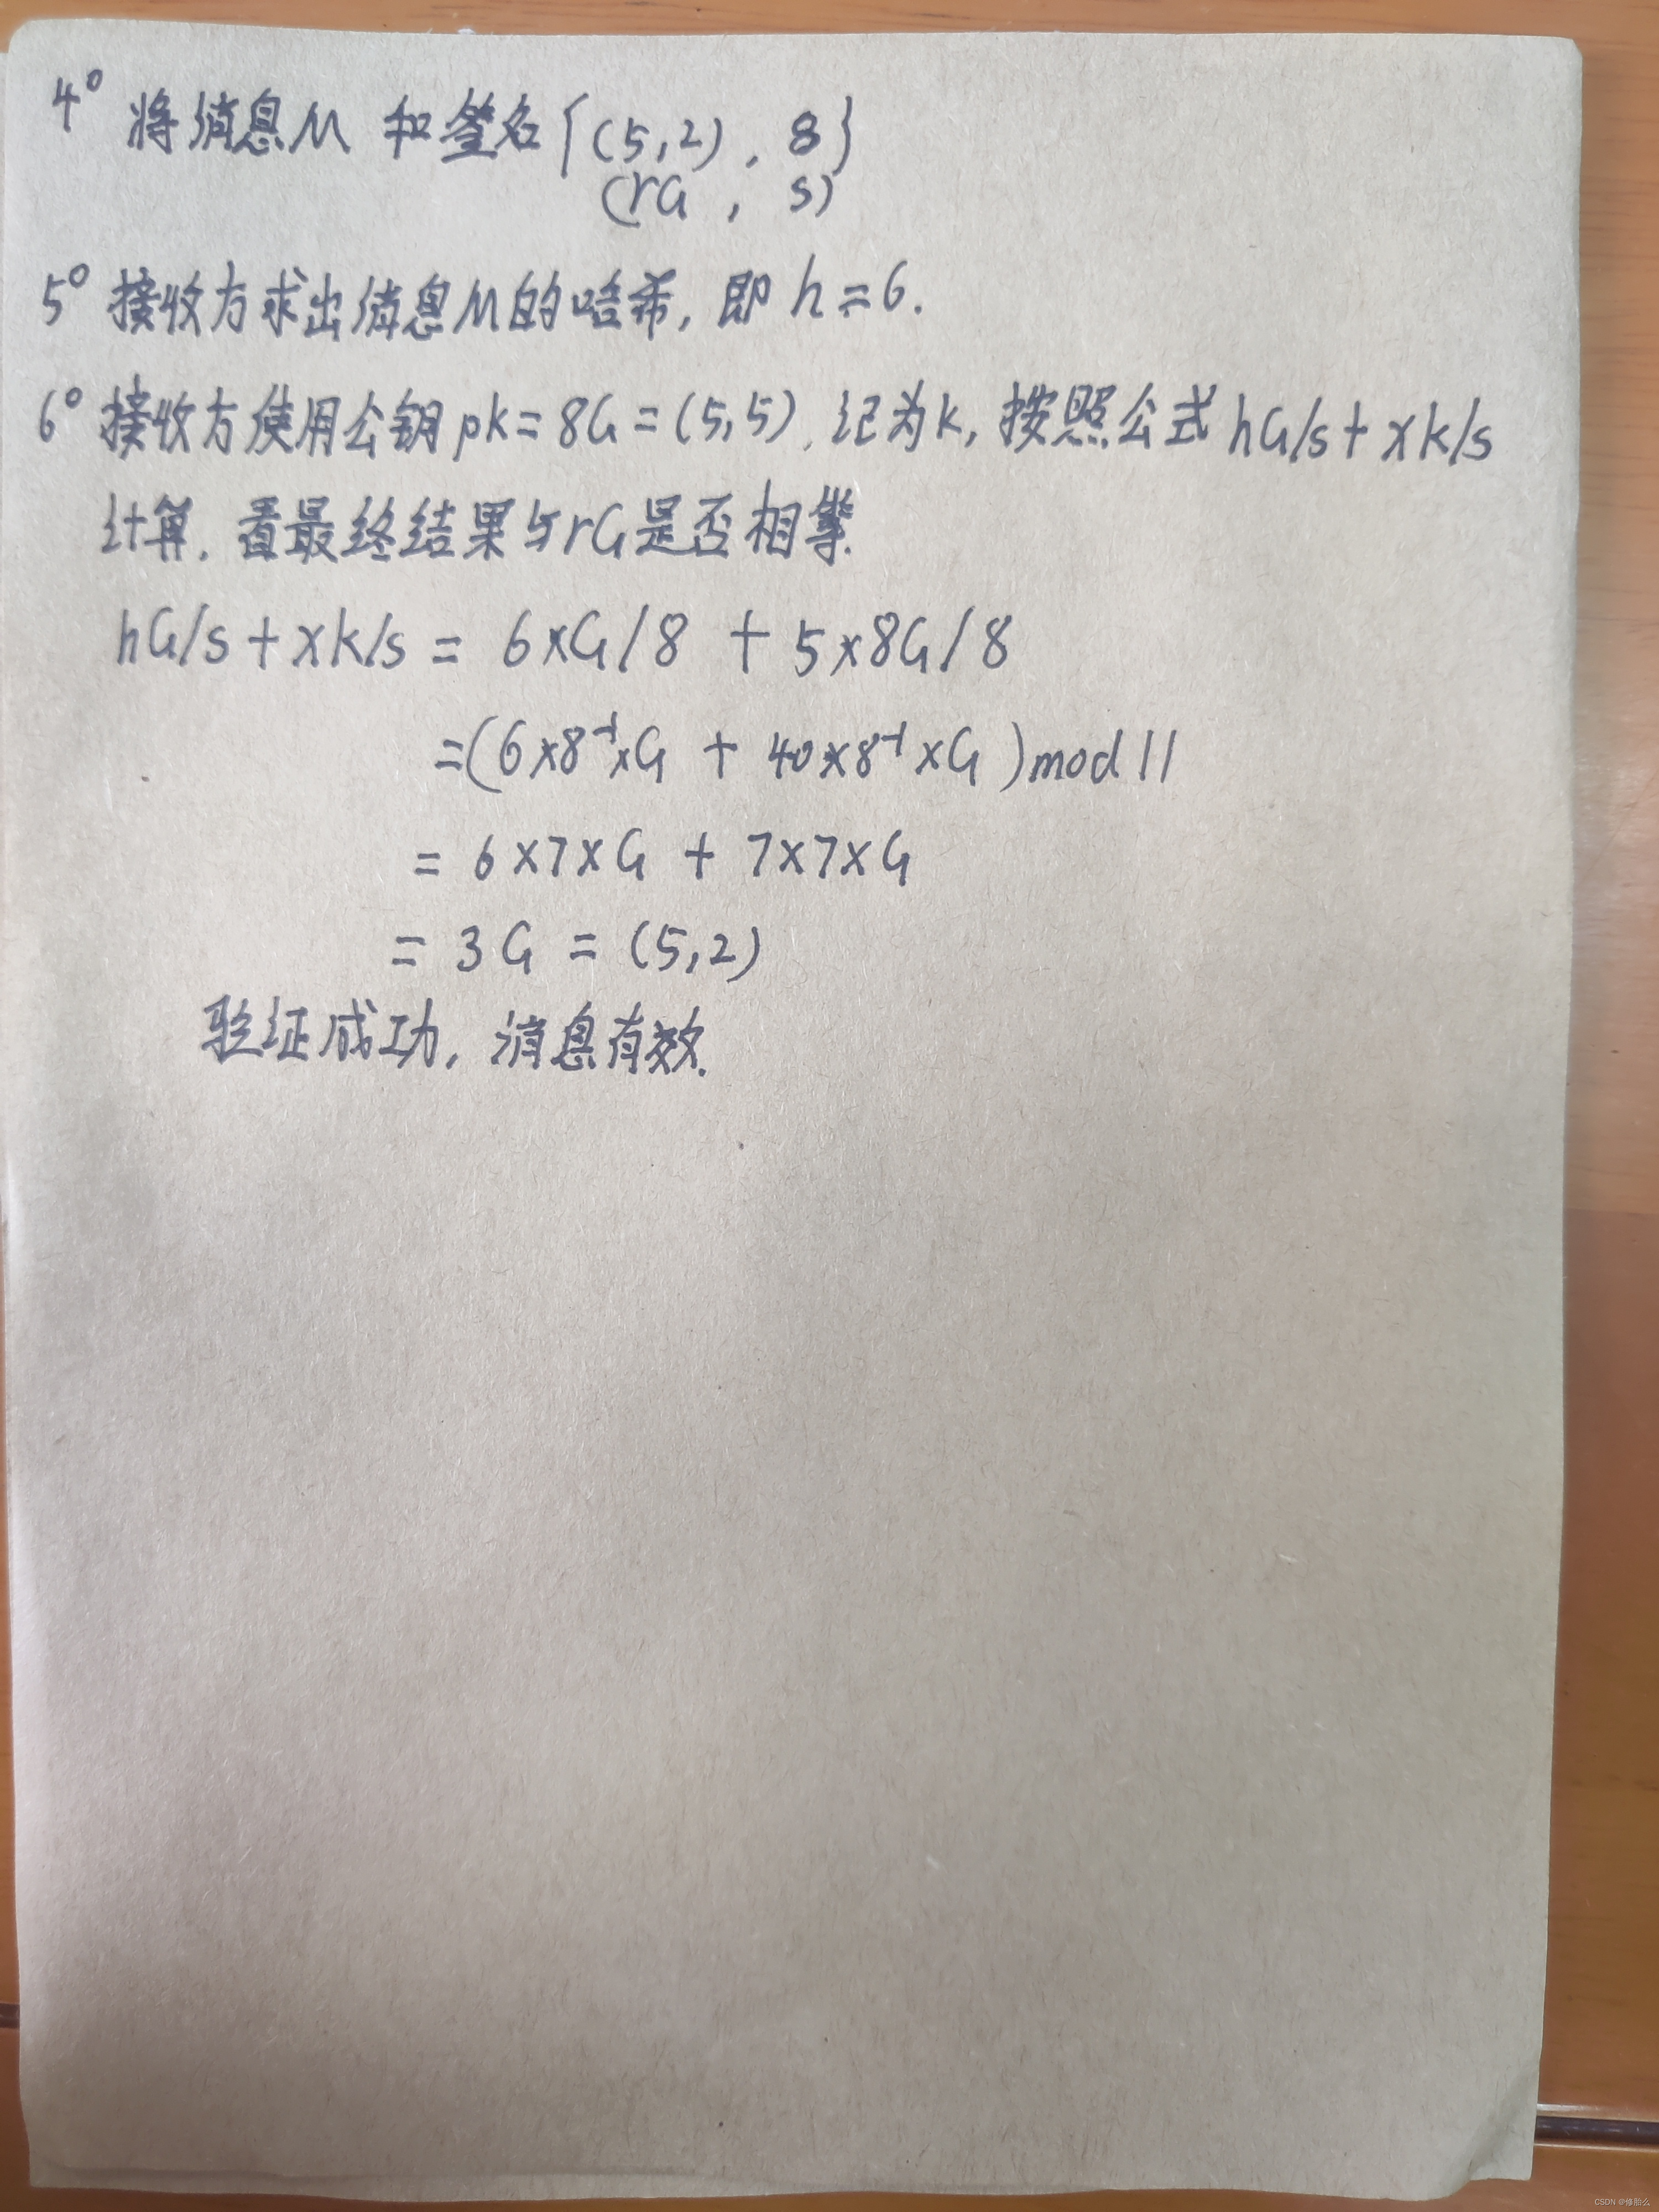 4° 将消息M 和签名{(5,2), 8}
(rG , s)
5° 接收方求出消息M的哈希, 即 h=6.
6° 接收方使用公钥pk=8G=(5,5), 记为k, 按照公式 hG/s+xk/s
计算, 看最终结果与rG是否相等.
hG/s+xk/s = 6×G/8 + 5×8G/8
=(6×8⁻¹×G + 40×8⁻¹×G)mod 11
= 6×7×G + 7×7×G
= 3G = (5,2)
验证成功, 消息有效.
CSDN @修胎么